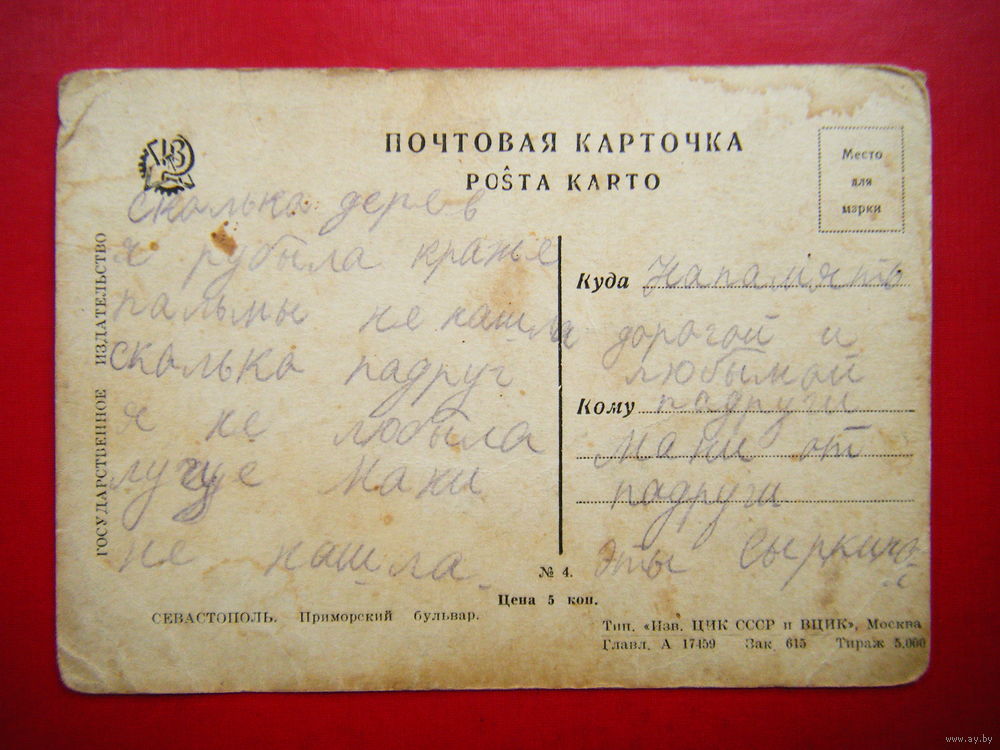 ПОЧТОВАЯ КАРТОЧКА
POŜTA KARTO
Место
для
марки
ГОСУДАРСТВЕННОЕ ИЗДАТЕЛЬСТВО
сколька дерев
я рубыла краше
пальмы не нашла
сколько падруг
я не любыла
лучще Мани
не нашла.
Куда Напамять
дорогой и
любымой
Кому падруги
Мани от
падруги
Эты
№ 4.
Цена 5 коп.
СЕВАСТОПОЛЬ. Приморский бульвар.
Тип. «Изв. ЦИК СССР и ВЦИК», Москва
Главл. А 17459 Зак 615 Тираж 5.000
www.ay.by